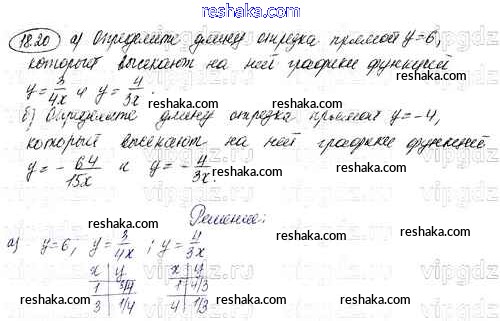 reshaka.com
18.20 а) Определите длину отрезка прямой y=6,
который высекают на ней графики функций
y=3/4x и y=4/3x.
reshaka.com
reshaka.com
reshaka.com
б) Определите длину отрезка прямой y=-4,
который высекают на ней графики функций
y=-64/15x и y=-4/3x.
reshaka.com
reshaka.com
reshaka.com
Решение:
а) y=6, y=3/4x; y=4/3x
x | y x | y
1 | 3/4 1 | 4/3
3 | 1/4 4 | 1/3
reshaka.com
reshaka.com
reshaka.com
vipgdz